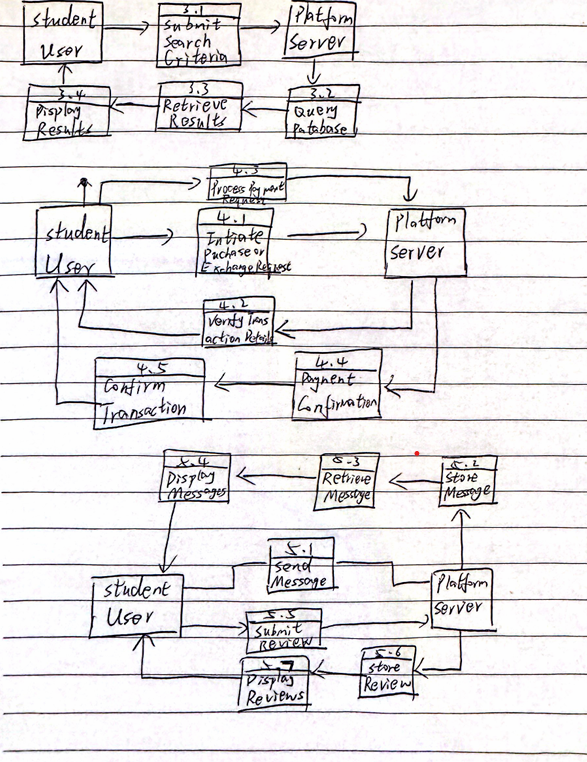 student
User
3.1
Submit
Search
Criteria
Platform
Server
3.4
Display
Results
3.3
Retrieve
Results
3.2
Query
Database
4.3
Process Payment
Request
student
User
4.1
Intiate
Puchase or
Exchange Request
Platform
Server
4.2
Verify Trans
action Details
4.5
Confirm
Transaction
4.4
Payment
Confirmation
5.4
Display
Messages
5.3
Retrieve
Message
5.2
Store
Message
5.1
Send
Message
student
User
Platform
Server
5.5
Submit
Review
5.7
Display
Reviews
5.6
Store
Review